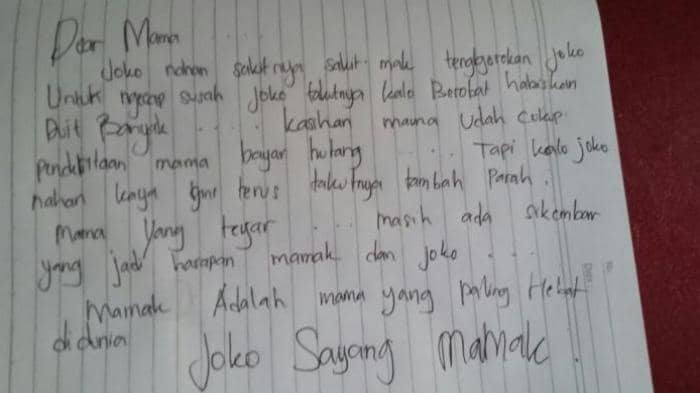 Dear Mama
Joko nahan sakitnya sakit mak tenggorokan Joko
Untuk ngecap susah Joko takutnya kalo Berobat habiskan
Duit Banyak .... kasihan mama Udah cukup
pendiritaan mama bayar hutang .... Tapi kalo joko
nahan kaya gini terus takutnya tambah Parah.
mama yang tegar .... masih ada sikembar
yang jadi harapan mamak dan Joko ...
Mamak Adalah mama yang paling Hebat
di dunia
Joko Sayang mamak.